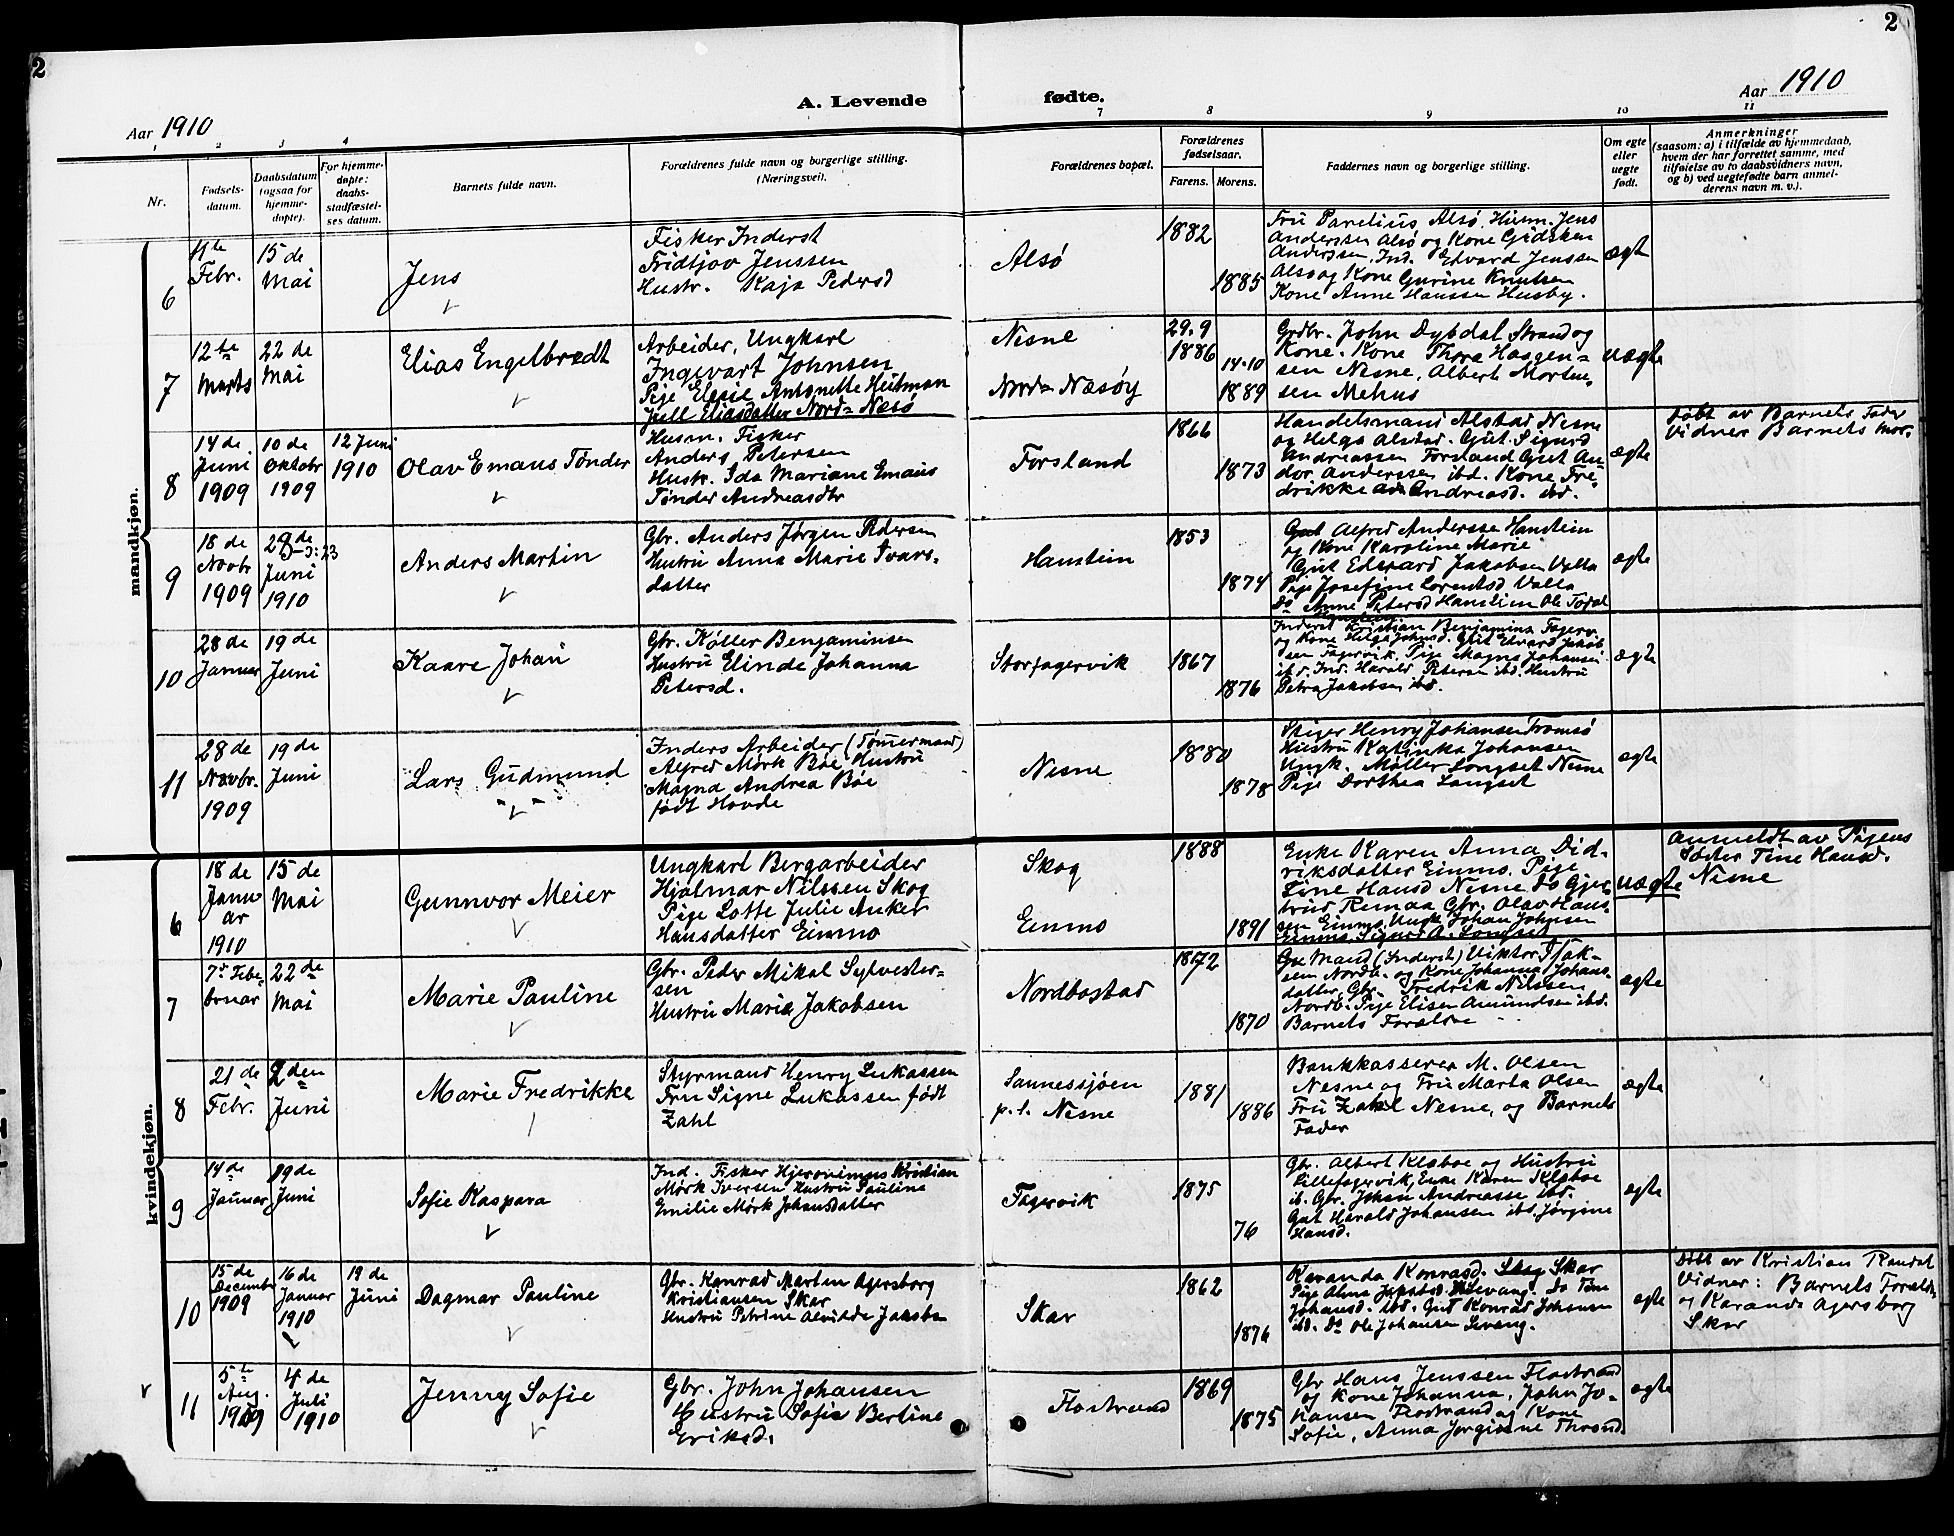 2
2
A. Levende fødte.
Aar 1910
Aar 1910
1 2 3 4 7 8 9 10 11
Nr.
Fødsels-
datum.
Daabsdatum
(ogsaa for
hjemme-
døpte).
For hjemme-
døpte:
daabs-
stadfæstel-
ses datum.
Barnets fulde navn.
Forældrenes fulde navn og borgerlige stilling.
(Næringsvei).
Forældrenes bopæl.
Forældrenes
fødselsaar.
Farens. Morens.
Faddernes navn og borgerlige stilling.
Om egte
eller
uegte
født.
Anmerkninger
(saasom: a) i tilfælde av hjemmedaab,
hvem der har forrettet samme, med
tilføielse av to daabsvidners navn,
og b) ved uegtefødte barn anmel-
derens navn m. v.).
mandkjøn.
6
4te
Febr.
15 de
Mai
Jens
Fisker Inderst
Fridtjov Jenssen
Hustr. Kaja Pedersd
Alsø
1882
1885
Fru Parelius, Alsø, Husm. Jens
Anderssen Alsø og Kone Gidsken
Anderssen, Ind. Edvard Jenssen
Alsø og Kone Gurine Knutsen
Kone Anne Hanssen Husby.
ægte
7
12te
Marts
22 de
Mai
Elias Engelbredt
Arbeider, Ungkarl
Ingevart Johnsen
Pige Elesie Antonette Heitman
Jull Eliasdatter Nord-Næsø
Nesne
Nord-Næsøy
29.9
1886
14-10
1889
Grdbr. John Dybdal Strand og
Kone. Kone Thora Haagen-
sen Nesne, Albert Morten-
sen Mehus
uægte
8
14 de
Juni
1909
10 de
Oktobr
1909
12 Juni
1910
Olav Emaus Tønder
Husm. Fisker
Anders Petersen
Hustr. Ida Mariane Emaus
Tønder Andreasdtr
Forsland
1866
1873
Handelsmand Alstad Nesne
og Helga Alstad. Gut Sigurd
Andreassen Forsland Gut An-
dor Anderssen ibd. Kone Fre-
drikke Andreasd. ibd.
ægte
Døbt av Barnets Fader
Vidner Barnets Mor.
9
18 de
Novbr
1909
Juni
1910
Anders Martin
Gbr. Anders Jørgen Pedersen
Hustru Anna Marie Ivars-
datter
Hanstein
1853
1874
Gut Alfred Anderssen Hanstein
og Kone Karoline Marie
Gut Edvard Jakobsen Valla
Pige Josefine Lorentsd Valla
Do Anne Petersd Hanstien Ole Toral
ægte
10
28 de
Januar
19 de
Juni
Kaare Johan
Gbr. Køller Benjaminsen
Hustru Elinde Johanna
Petersd.
Storfagervik
1867
1876
Inderst Kristian Benjamins Fagerv
og Kone Helga Johnsd. Gut Edvard Jakob
sen Fagervik. Pige Magna Johansen
ibd. Ind. Harald Petersen ibd. Hustru
Petra Jakobsen ibd.
ægte
11
28 de
Novbr.
1909
19 de
Juni
Lars Gudmund
Inders Arbeider (Tømmermand)
Alfred Mørk Bøe Hustru
Magna Andrea Bøe
født Hovde
Nesne
1880
1878
Skiper Henry Johansen Tromsø
Hustru Katinka Johansen
Ungk. Møller Langset Nesne
Pige Dorthea Langset
ægte
kvindekjøn.
6
18 de
Janu-
ar
1910
15 de
Mai
Gunnvor Meier
Ungkarl Bergarbeider
Hjalmar Nilssen Skog
Pige Lotte Julie Anker
Hansdatter Einmo
Skog
Einmo
1888
1891
Enke Karen Anna Did-
riksdatter Einmo. Pige
Tine Hansd Nesne do Gjer
trud Remaa Gbr. Olav Hans-
sen Einmo. Ungk Johan Johnsen
Einmo. Sigurd A. Langset
uægte
Anmeldt av Pigens
Søster Tine Hansd.
Nesne
7
7de Febr
bruar
22 de
Mai
Marie Pauline
Gbr. Peder Mikal Sylvester-
sen
Hustru Marie Jakobsen
Nordbostad
1872
1870
Mand (Inderst) Viktor Isak-
sen Nordb. og Kone Johanna Johans-
datter, Gbr. Fredrik Nilssen
Nordb. Pige Elisen Amundsen ibd.
Barnets Forældre
ægte
8
21 de
Febr.
2den
Juni
Marie Fredrikke
Styrmand Henry Lukassen
Fru Signe Lukassen født
Zahl
Sannessjøen
p.t. Nesne
1881
1886
Bankkasserer M. Olsen
Nesne og Fru Marta Olsen
Fru Zahl Nesne, og Barnets
Fader
ægte
9
14 de
Januar
19 de
Juni
Sofie Kaspara
Ind. Fisker Hjeronimus Kristian
Mørk Iversen Hustru Pauline
Emilie Mørk Johansdatter
Fagervik
1875
76
Gbr. Albert Klæboe og Hustru
Lillefagervik, Enke Karen Klæboe
ib. Gbr. Johan Andreasse ibd.
Gut Harald Johansen ibd. Jørgine
Hansd.
ægte
10
15 de
December
1909
16 de
Januar
1910
19 de
Juni
Dagmar Pauline
Gbr. Konrad Martin Agersborg
Kristiansen Skar
Hustru Petrine Alvilde Jakobs
Skar
1862
1876
Karanda Konradd. Skar
Pige Alma Levang. Do Tine
Johansd. ibd. Gut Konrad Johansen
ibd. Do Ole Johansen Levang.
ægte
Døbt av Kristian Randal
Vidner: Barnets Foreldr
og Karanda Agersborg
Skar
11
5te
Aug.
1909
4 de
Juli
1910
Jenny Sofie
Gbr. John Johansen
Hustru Sofie Bertine
Eriksd.
Flostrand
1869
1875
Gbr Hans Jenssen Flostrand
og Kone Johanna, John Jo-
hansen Flostrand og Kone
Sofie, Anna Jørgine Thrond
ægte